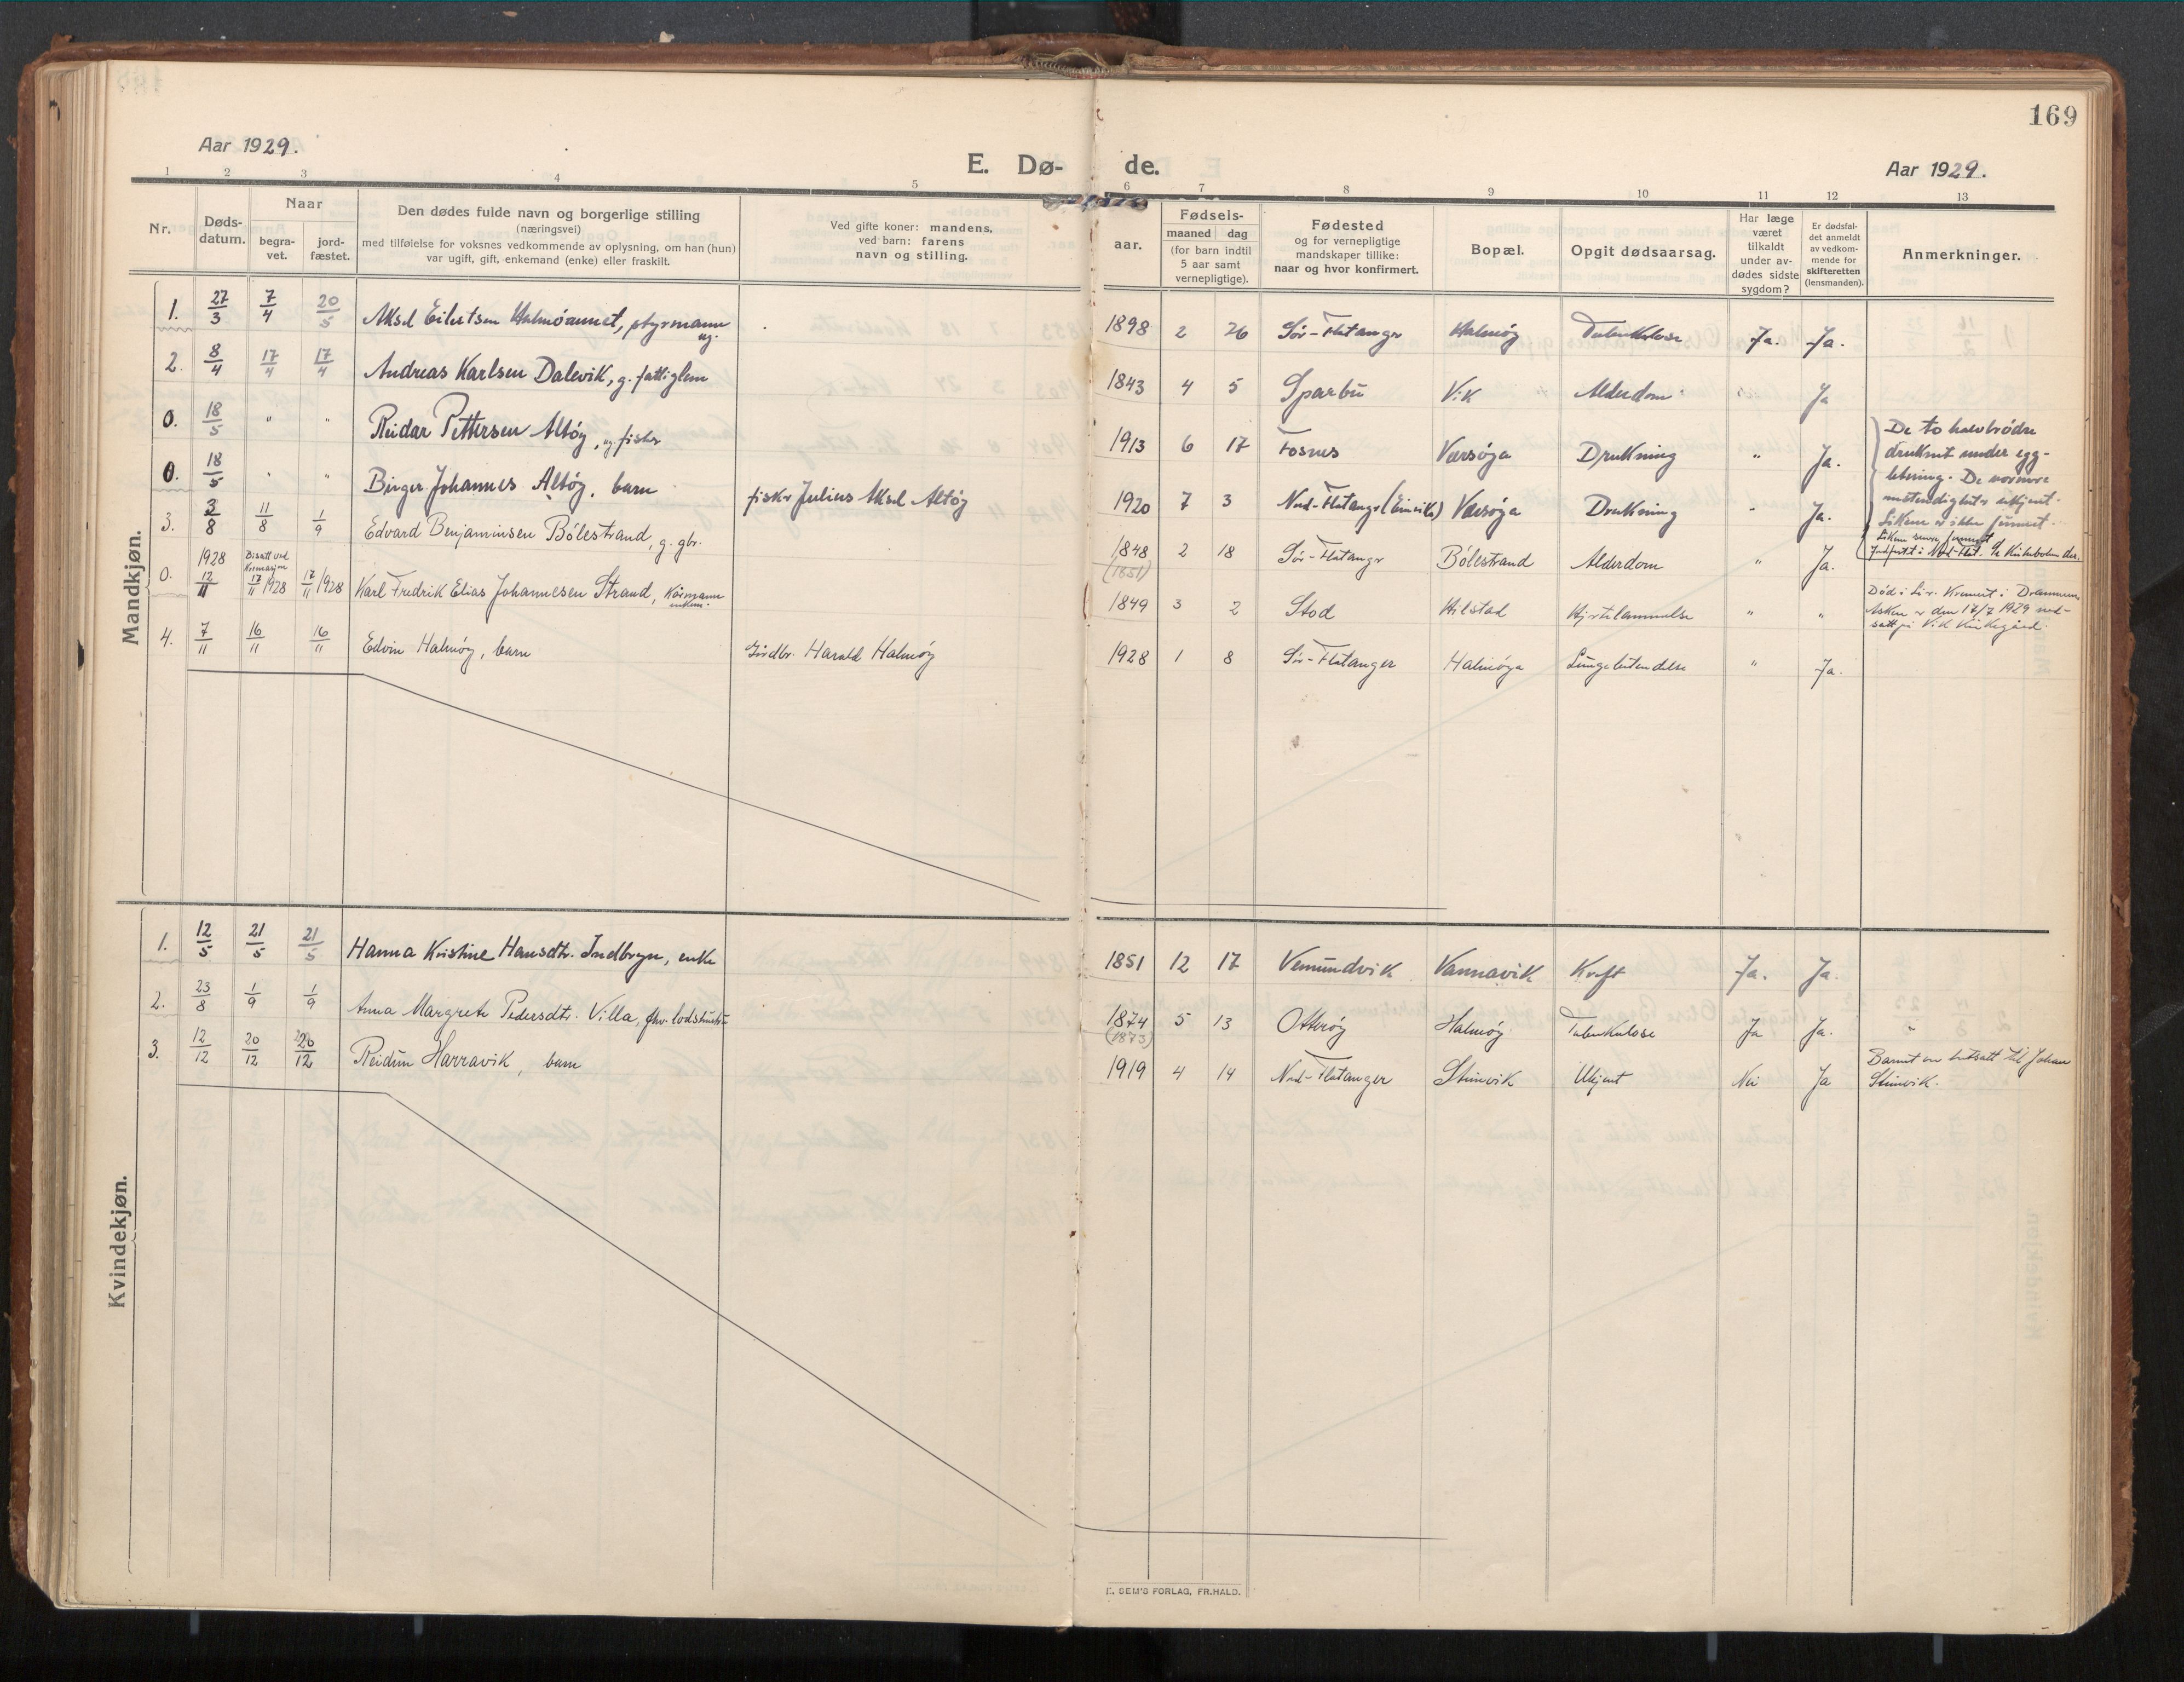 169
Aar 1929.
E. Dø- de.
Aar 1929.
1 2 3 4 5 6 7 8 9 10 11 12 13
Nr.
Døds-
datum.
Naar
begra-
vet.
jord-
fæstet.
Den dødes fulde navn og borgerlige stilling
(næringsvei)
med tilføielse for voksnes vedkommende av oplysning, om han (hun)
var ugift, gift, enkemand (enke) eller fraskilt.
Ved gifte koner: mandens,
ved barn: farens
navn og stilling.
aar.
Fødsels-
maaned dag
(for barn indtil
5 aar samt
vernepligtige).
Fødested
og for vernepligtige
mandskaper tillike:
naar og hvor konfirmert.
Bopæl.
Opgit dødsaarsag.
Har læge
været
tilkaldt
under av-
dødes sidste
sygdom?
Er dødsfal-
det anmeldt
av vedkom-
mende for
skifteretten
(lensmanden).
Anmerkninger.
Mandkjøn.
1. 27/3 7/4 20/5 Aksel Eilertsen Halmöaunet, styrmann ug. 1898 2 26 Sör-Flatanger Halmöy Tuberkulose Ja. Ja.
2. 8/4 17/4 17/4 Andreas Karlsen Dalevik, g. fattiglem 1843 4 5 Sparbu Vik Alderdom " Ja
0. 18/5 " " Reidar Pettersen Altöy, ug fisker 1913 6 17 Fosnes Værsöya Drukning " Ja.
0. 18/5 " " Birger Johannes Altöy, barn fisker Julius Aksel Altöy 1920 7 3 Nord-Flatanger (Einvika) Værsöya Drukning " Ja.
De to halvbrödre
druknet under egg-
letning. De nærmere
omstendigheter ukjent.
Likene er ikke funnet.
Likene senere funnet
Jordfestet i Nord-Flat. Se Kirkeboken der.
3. 3/8 11/8 1/9 Edvard Benjaminsen Bölestrand, g. gbr. 1848 (1851) 2 18 Sör-Flatanger Bölestrand Alderdom " Ja.
0. 1928 12/11 Bisatt ved Kremasjon 17/11 1928 17/11 1928 Karl Fredrik Elias Johannesen Strand, Kårmann enkem. 1849 3 2 Stod Hilstad Hjertelammelse " "
Död i Lier. Kremert i Drammen.
Asken er den 17/7 1929 ned-
satt på Vik Kirkegård.
4. 7/11 16/11 16/11 Edvin Halmöy, barn Gårdbr. Harald Halmöy 1928 1 8 Sör-Flatanger Halmöya Lungebetendelse " Ja.
Kvindekjøn.
1. 12/5 21/5 21/5 Hanna Kristine Hansdtr. Indbryn, enke 1851 12 17 Vemundvik Vannavik Kreft Ja. Ja.
2. 23/8 1/9 1/9 Anna Margrete Pedersdtr. Villa, fhv. 1874 (1873) 5 13 Otteröy Halmöy Tuberkulose Ja Ja. "
3. 12/12 20/12 20/12 Reidun Harravik, barn 1919 4 14 Nord-Flatanger Steinvik Ukjent Nei Ja
Barnet var bortsatt til Johan
Steinvik.
E. SEM'S FORLAG, FR.HALD.